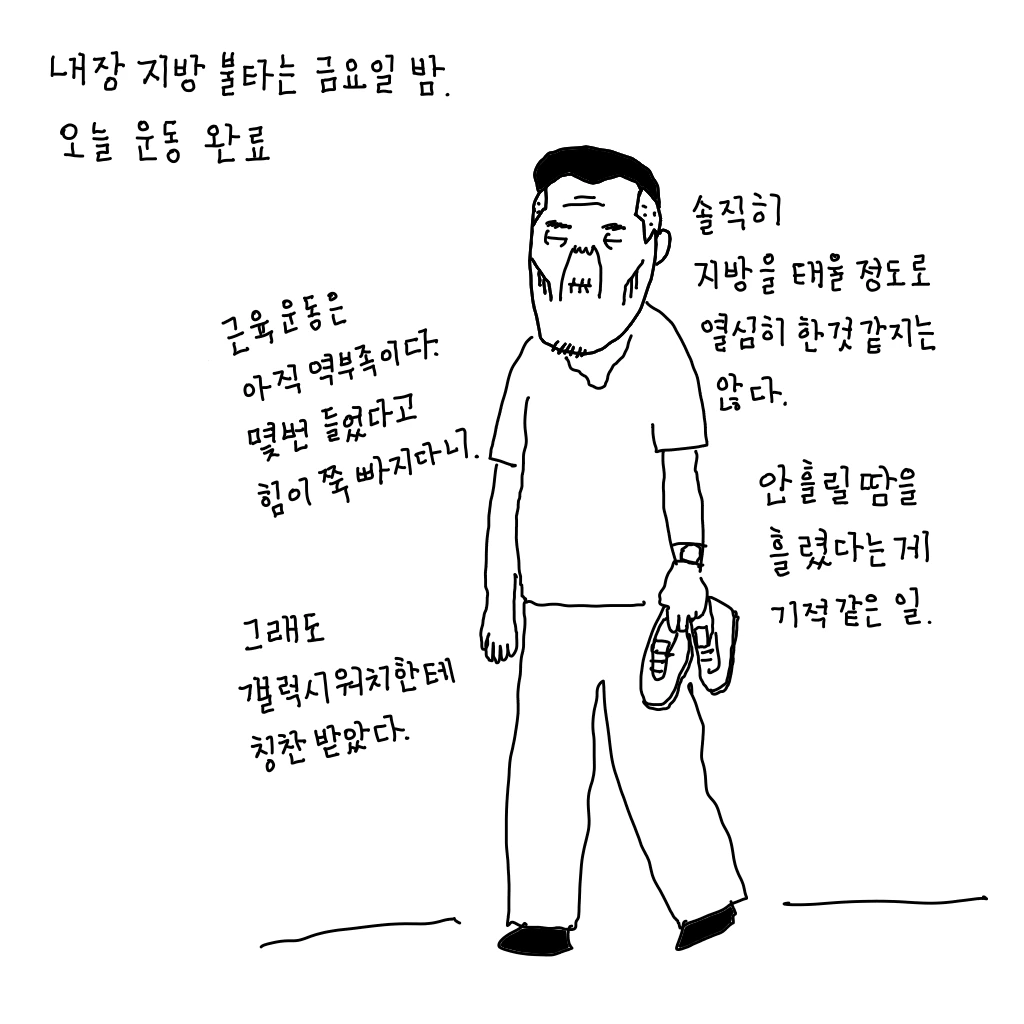 내장 지방 불타는 금요일 밤.
오늘 운동 완료
솔직히
지방을 태울 정도로
열심히 한것 같지는
않다.
근육운동은
아직 역부족이다.
몇번 들었다고
힘이 쭉 빠지다니.
안흘릴 땀을
흘렸다는게
기적같은 일.
그래도
갤럭시워치한테
칭찬 받았다.